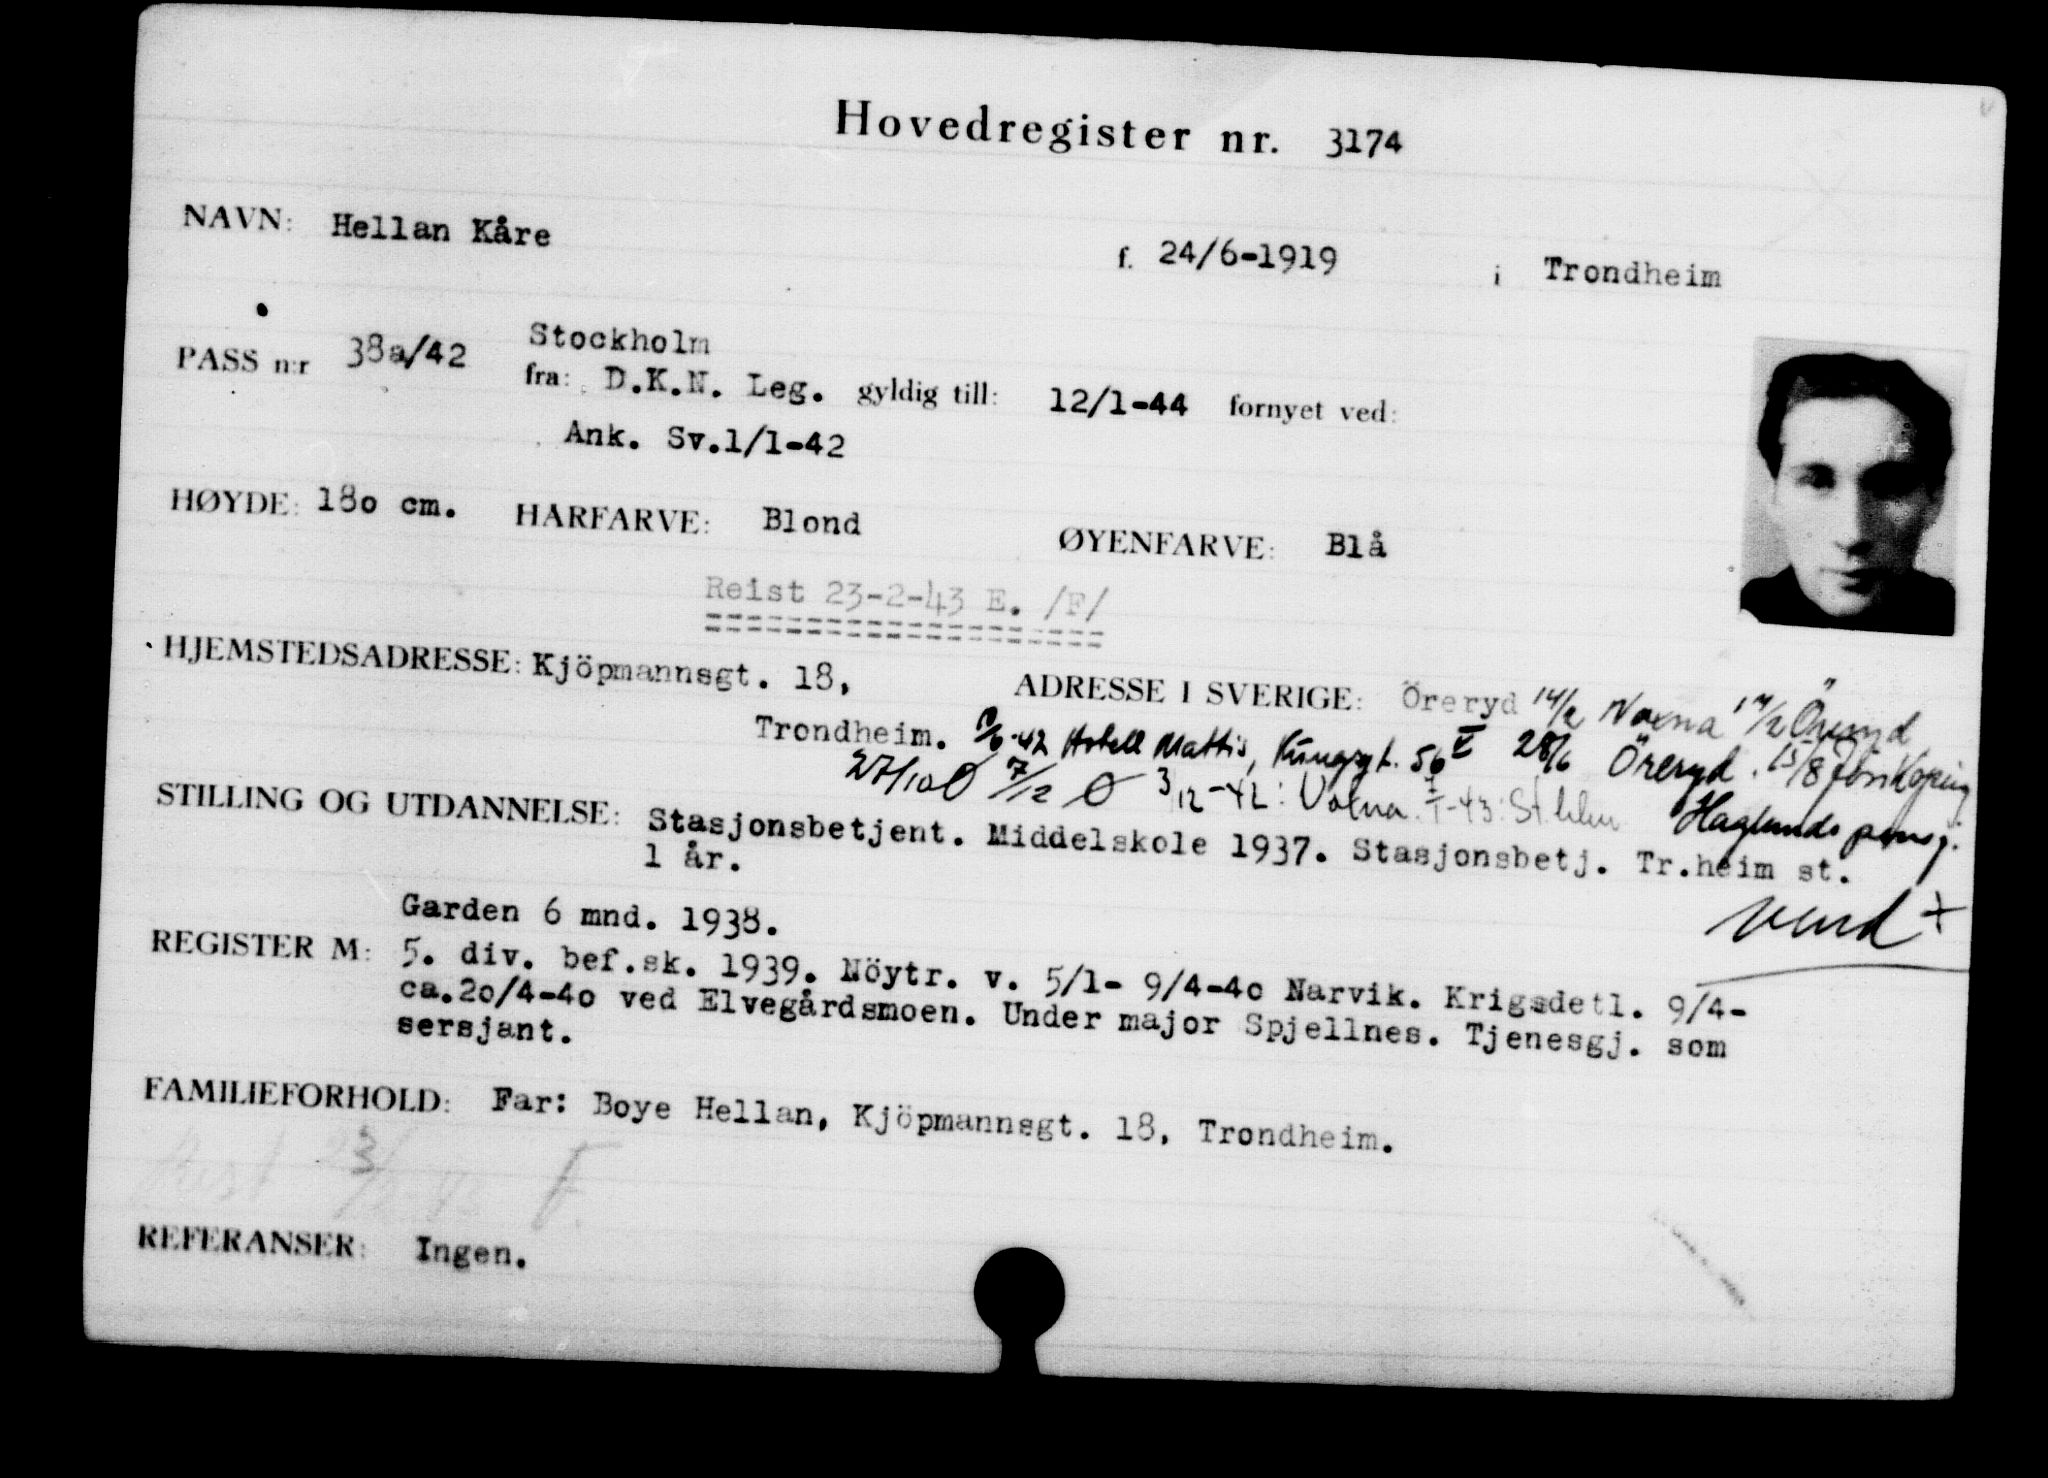 Hovedregister nr. 3174
NAVN: Hellan Kåre f. 24/6-1919 i Trondheim
Stockholm
PASS n:r 38a/42 fra: D.K.N. Leg. gyldig till: 12/1-44 fornyet ved:
Ank. Sv.1/1-42
HØYDE: 18o cm. HÅRFARVE: Blond ØYENFARVE: Blå
Reist 23-2-43 E. /F/
HJEMSTEDSADRESSE: Kjöpmannsgt. 18, ADRESSE I SVERIGE: Öreryd 14/2 Voxna 17/2 Öreryd
Trondheim. /6-42 Hotell Mattis, Kungsgt. 56 II 28/6 Öreryd. 15/8 Jönköping
27/10 Ø 7/12 Ø 3/12-42: Voxna. I-43: St.hlm Haglunds pensj.
STILLING OG UTDANNELSE: Stasjonsbetjent. Middelskole 1937. Stasjonsbetj. Tr.heim st.
1 år.
vend +
Garden 6 mnd. 1938.
REGISTER M: 5. div. bef.sk. 1939. Nöytr. v. 5/1- 9/4-4o Narvik. Krigsdetl. 9/4-
ca.2o/4-4o ved Elvegårdsmoen. Under major Spjellnes. Tjenesgj. som
sersjant.
FAMILIEFORHOLD: Far: Boye Hellan, Kjöpmannsgt. 18, Trondheim.
Reist 23/2 43 F.
REFERANSER: Ingen.